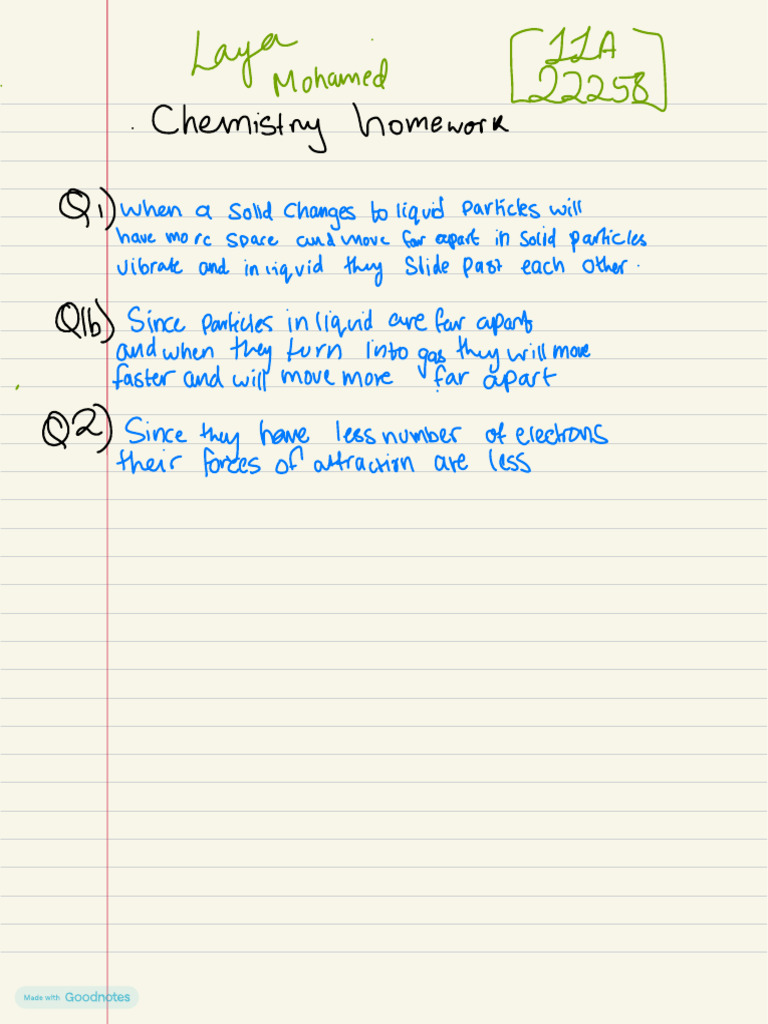 Laya
Mohamed
11A
22258
Chemistry homework
Q1) When a solid changes to liquid particles will
have more space and move far apart in solid particles
vibrate and in liquid they slide past each other.
Q1b) Since particles in liquid are far apart
and when they turn into gas they will move
faster and will move more far apart
Q2) Since they have less number of electrons
their forces of attraction are less
Made with Goodnotes